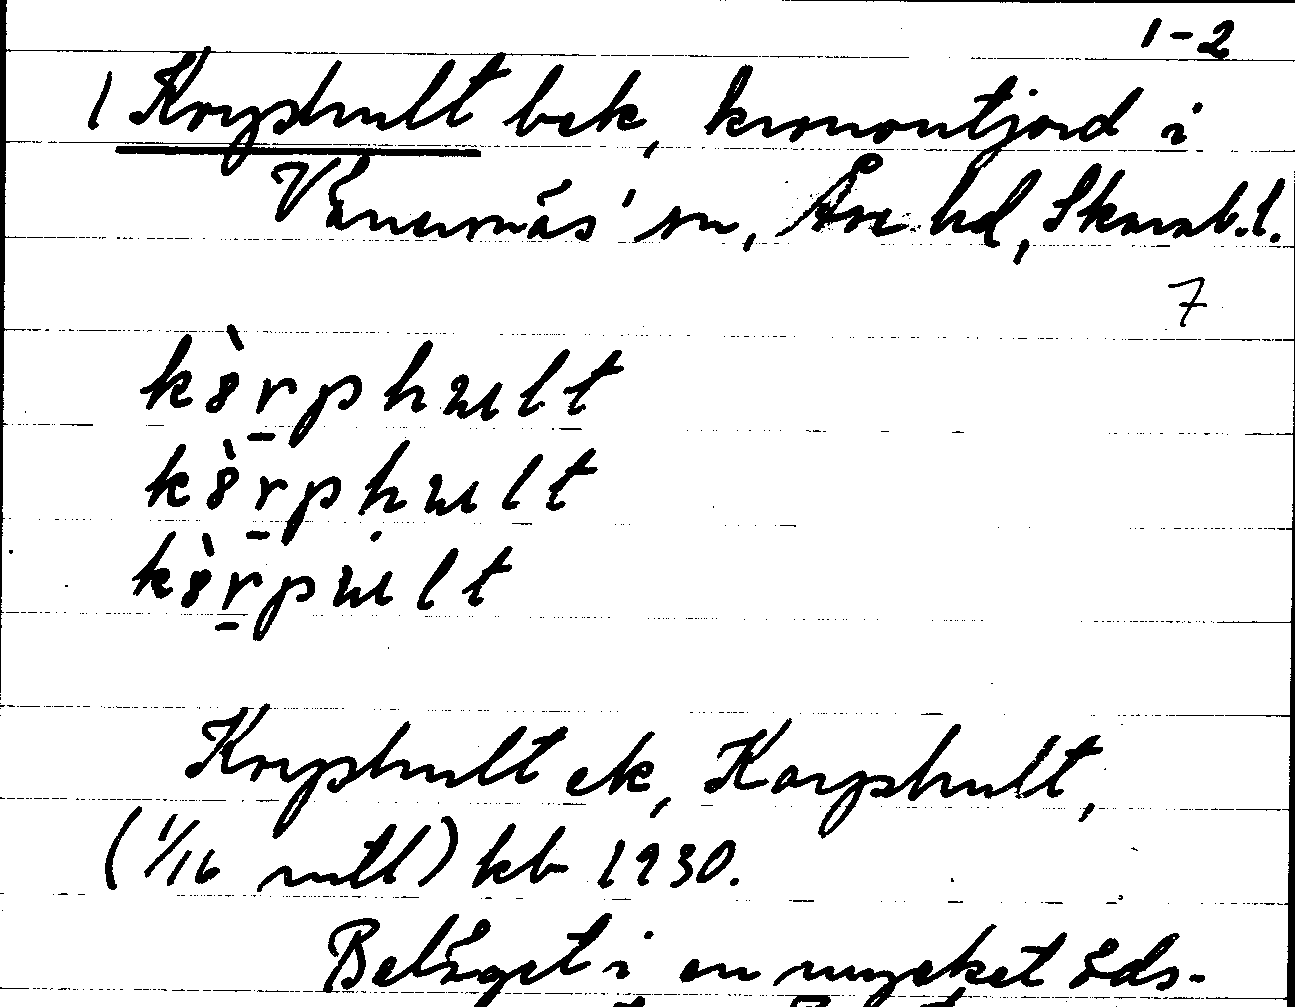 1-2
1 Krypshult bek, kronoutjord i
Vänersnäs' sn, Åse hd, Skarab.l.
7
kȯ̀rphult
kȯ̀rphult
kȯ̀rpult
Krypshult ek, Karpshult,
(1/16 mtl) kb 1930.
Beläget i en mycket öds-